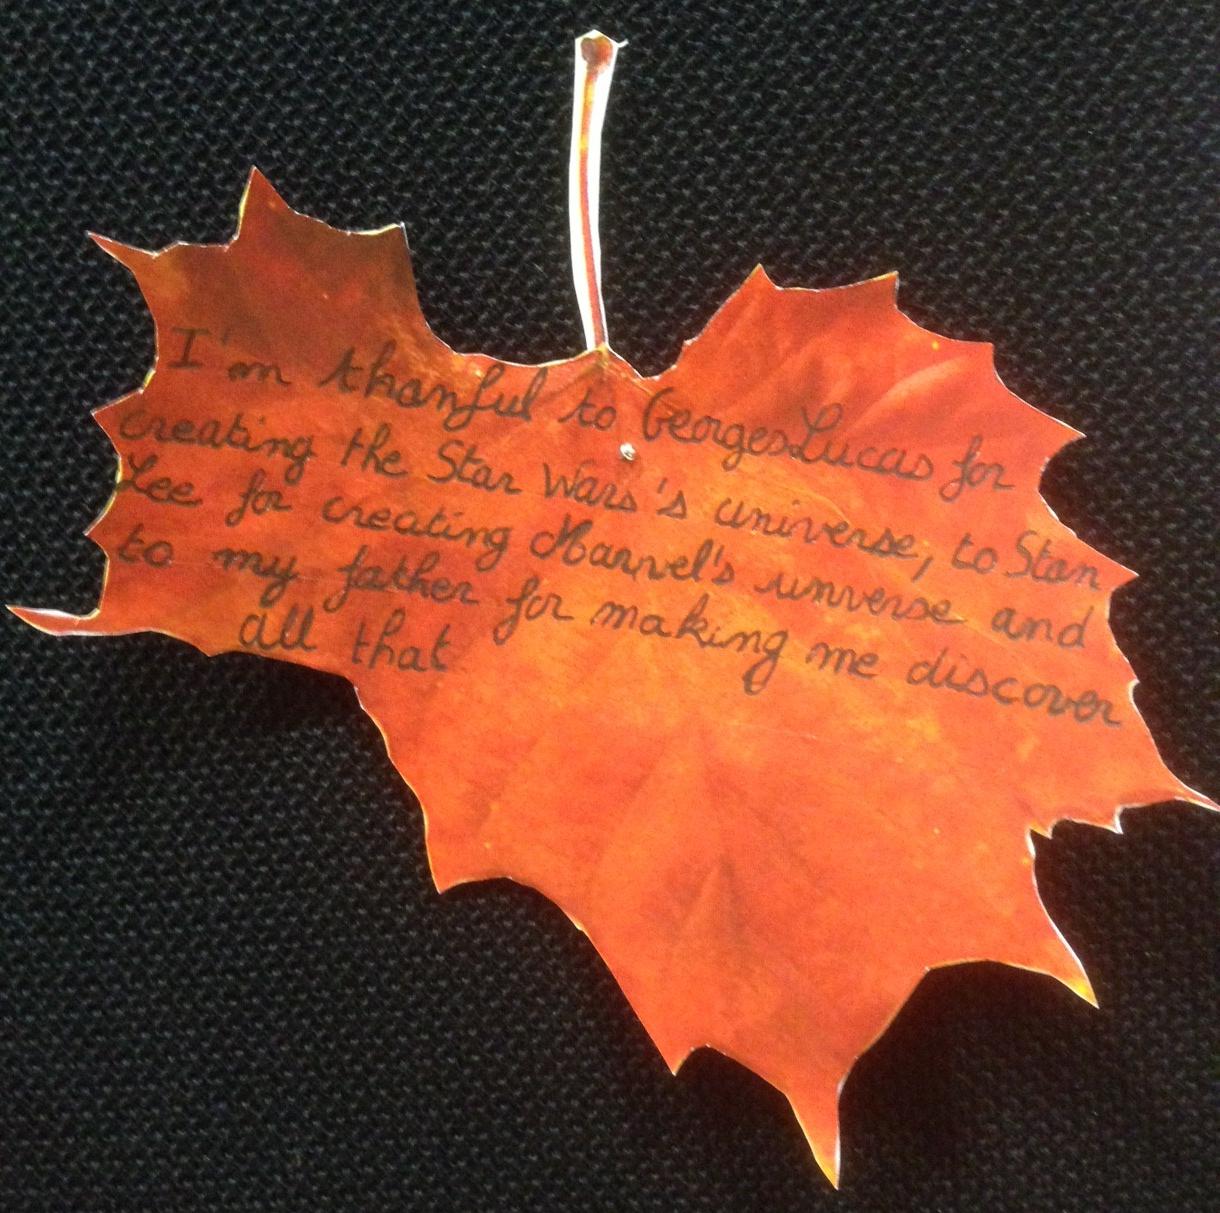 I'm thanful to Georges Lucas for
creating the Star Wars's universe, to Stan
Lee for creating Marvel's unverse and
to my father for making me discover
all that